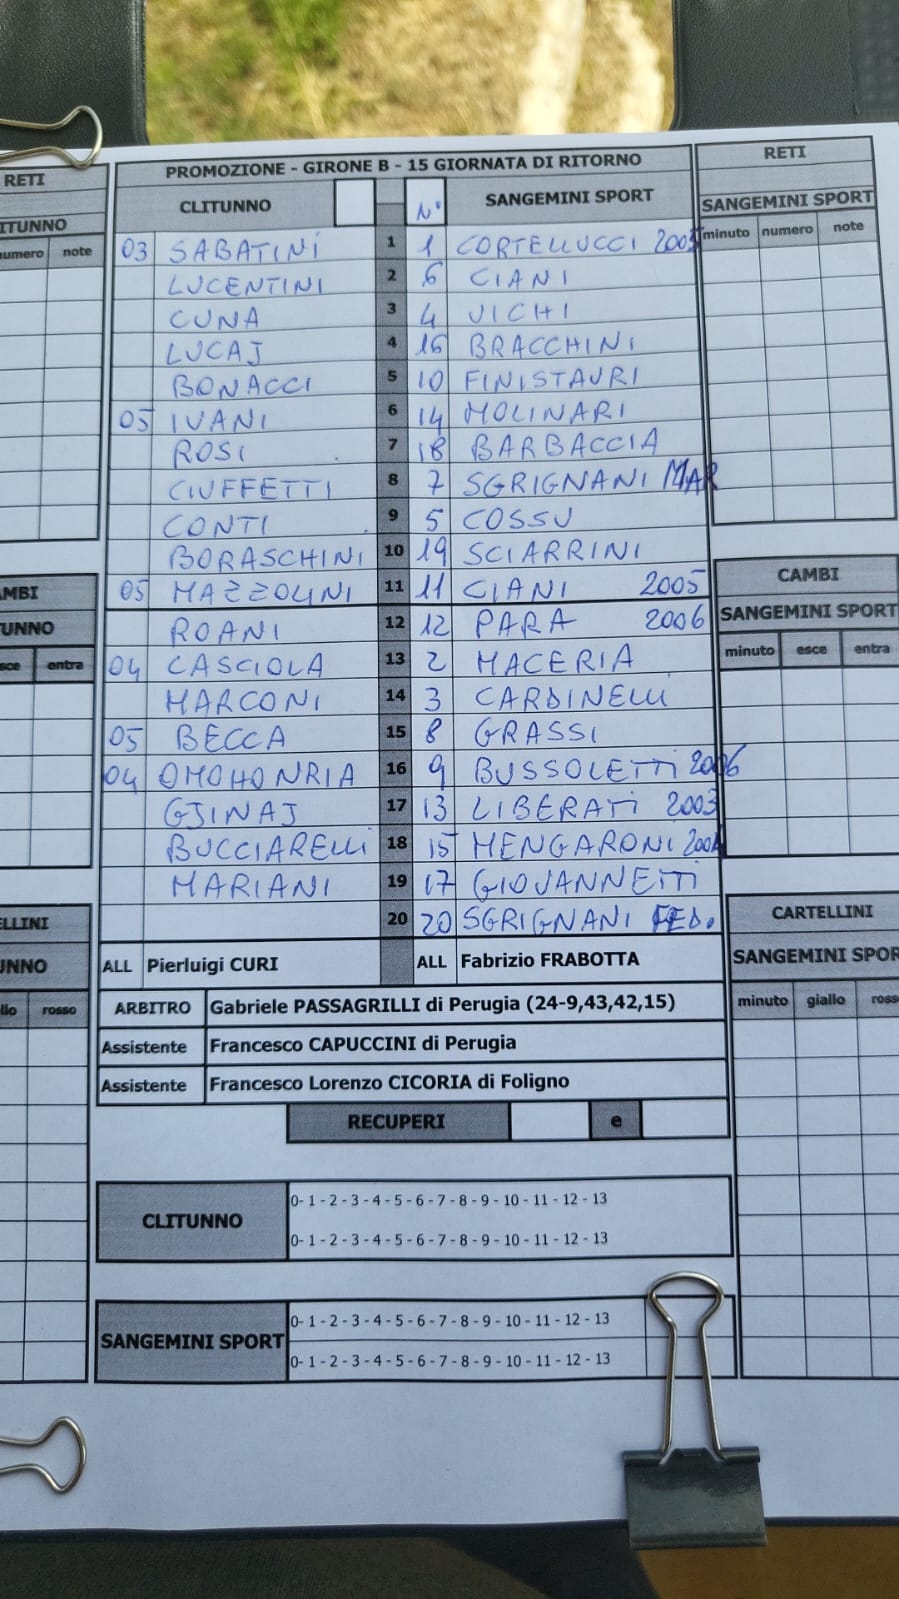 PROMOZIONE - GIRONE B - 15 GIORNATA DI RITORNO
CLITUNNO N° SANGEMINI SPORT
03 SABATINI 1 1 CORTELLUCCI
LUCENTINI 2 6 CIANI
CUNA 3 4 VICHI
LUCAJ 4 16 BRACCHINI
BONACCI 5 10 FINISTAURI
05 IVANI 6 14 MOLINARI
ROSI 7 18 BARBACCIA
CIUFFETTI 8 7 SGRIGNANI MAR
CONTI 9 5 COSSU
BORASCHINI 10 19 SCIARRINI
05 MAZZOLINI 11 11 CIANI 2005
ROANI 12 12 PARA 2006
04 CASCIOLA 13 2 MACERIA
MARCONI 14 3 CARDINELLI
05 BECCA 15 8 GRASSI
04 OMOHONRIA 16 9 BUSSOLETTI 2006
GJINAJ 17 13 LIBERATI 2003
BUCCIARELLI 18 15 MENGARONI
MARIANI 19 17 GIOVANNETTI
20 20 SGRIGNANI FED.
ALL Pierluigi CURI ALL Fabrizio FRABOTTA
ARBITRO Gabriele PASSAGRILLI di Perugia (24-9,43,42,15)
Assistente Francesco CAPUCCINI di Perugia
Assistente Francesco Lorenzo CICORIA di Foligno
RECUPERI e
CLITUNNO
0- 1 - 2 - 3 - 4 - 5 - 6 - 7 - 8 - 9 - 10 - 11 - 12 - 13
0- 1 - 2 - 3 - 4 - 5 - 6 - 7 - 8 - 9 - 10 - 11 - 12 - 13
SANGEMINI SPORT
0- 1 - 2 - 3 - 4 - 5 - 6 - 7 - 8 - 9 - 10 - 11 - 12 - 13
0- 1 - 2 - 3 - 4 - 5 - 6 - 7 - 8 - 9 - 10 - 11 - 12 - 13
RETI
ITUNNO
umero note
MBI
UNNO
sce entra
ELLINI
UNNO
llo rosso
RETI
SANGEMINI SPORT
minuto numero note
CAMBI
SANGEMINI SPORT
minuto esce entra
CARTELLINI
SANGEMINI SPOR
minuto giallo ross